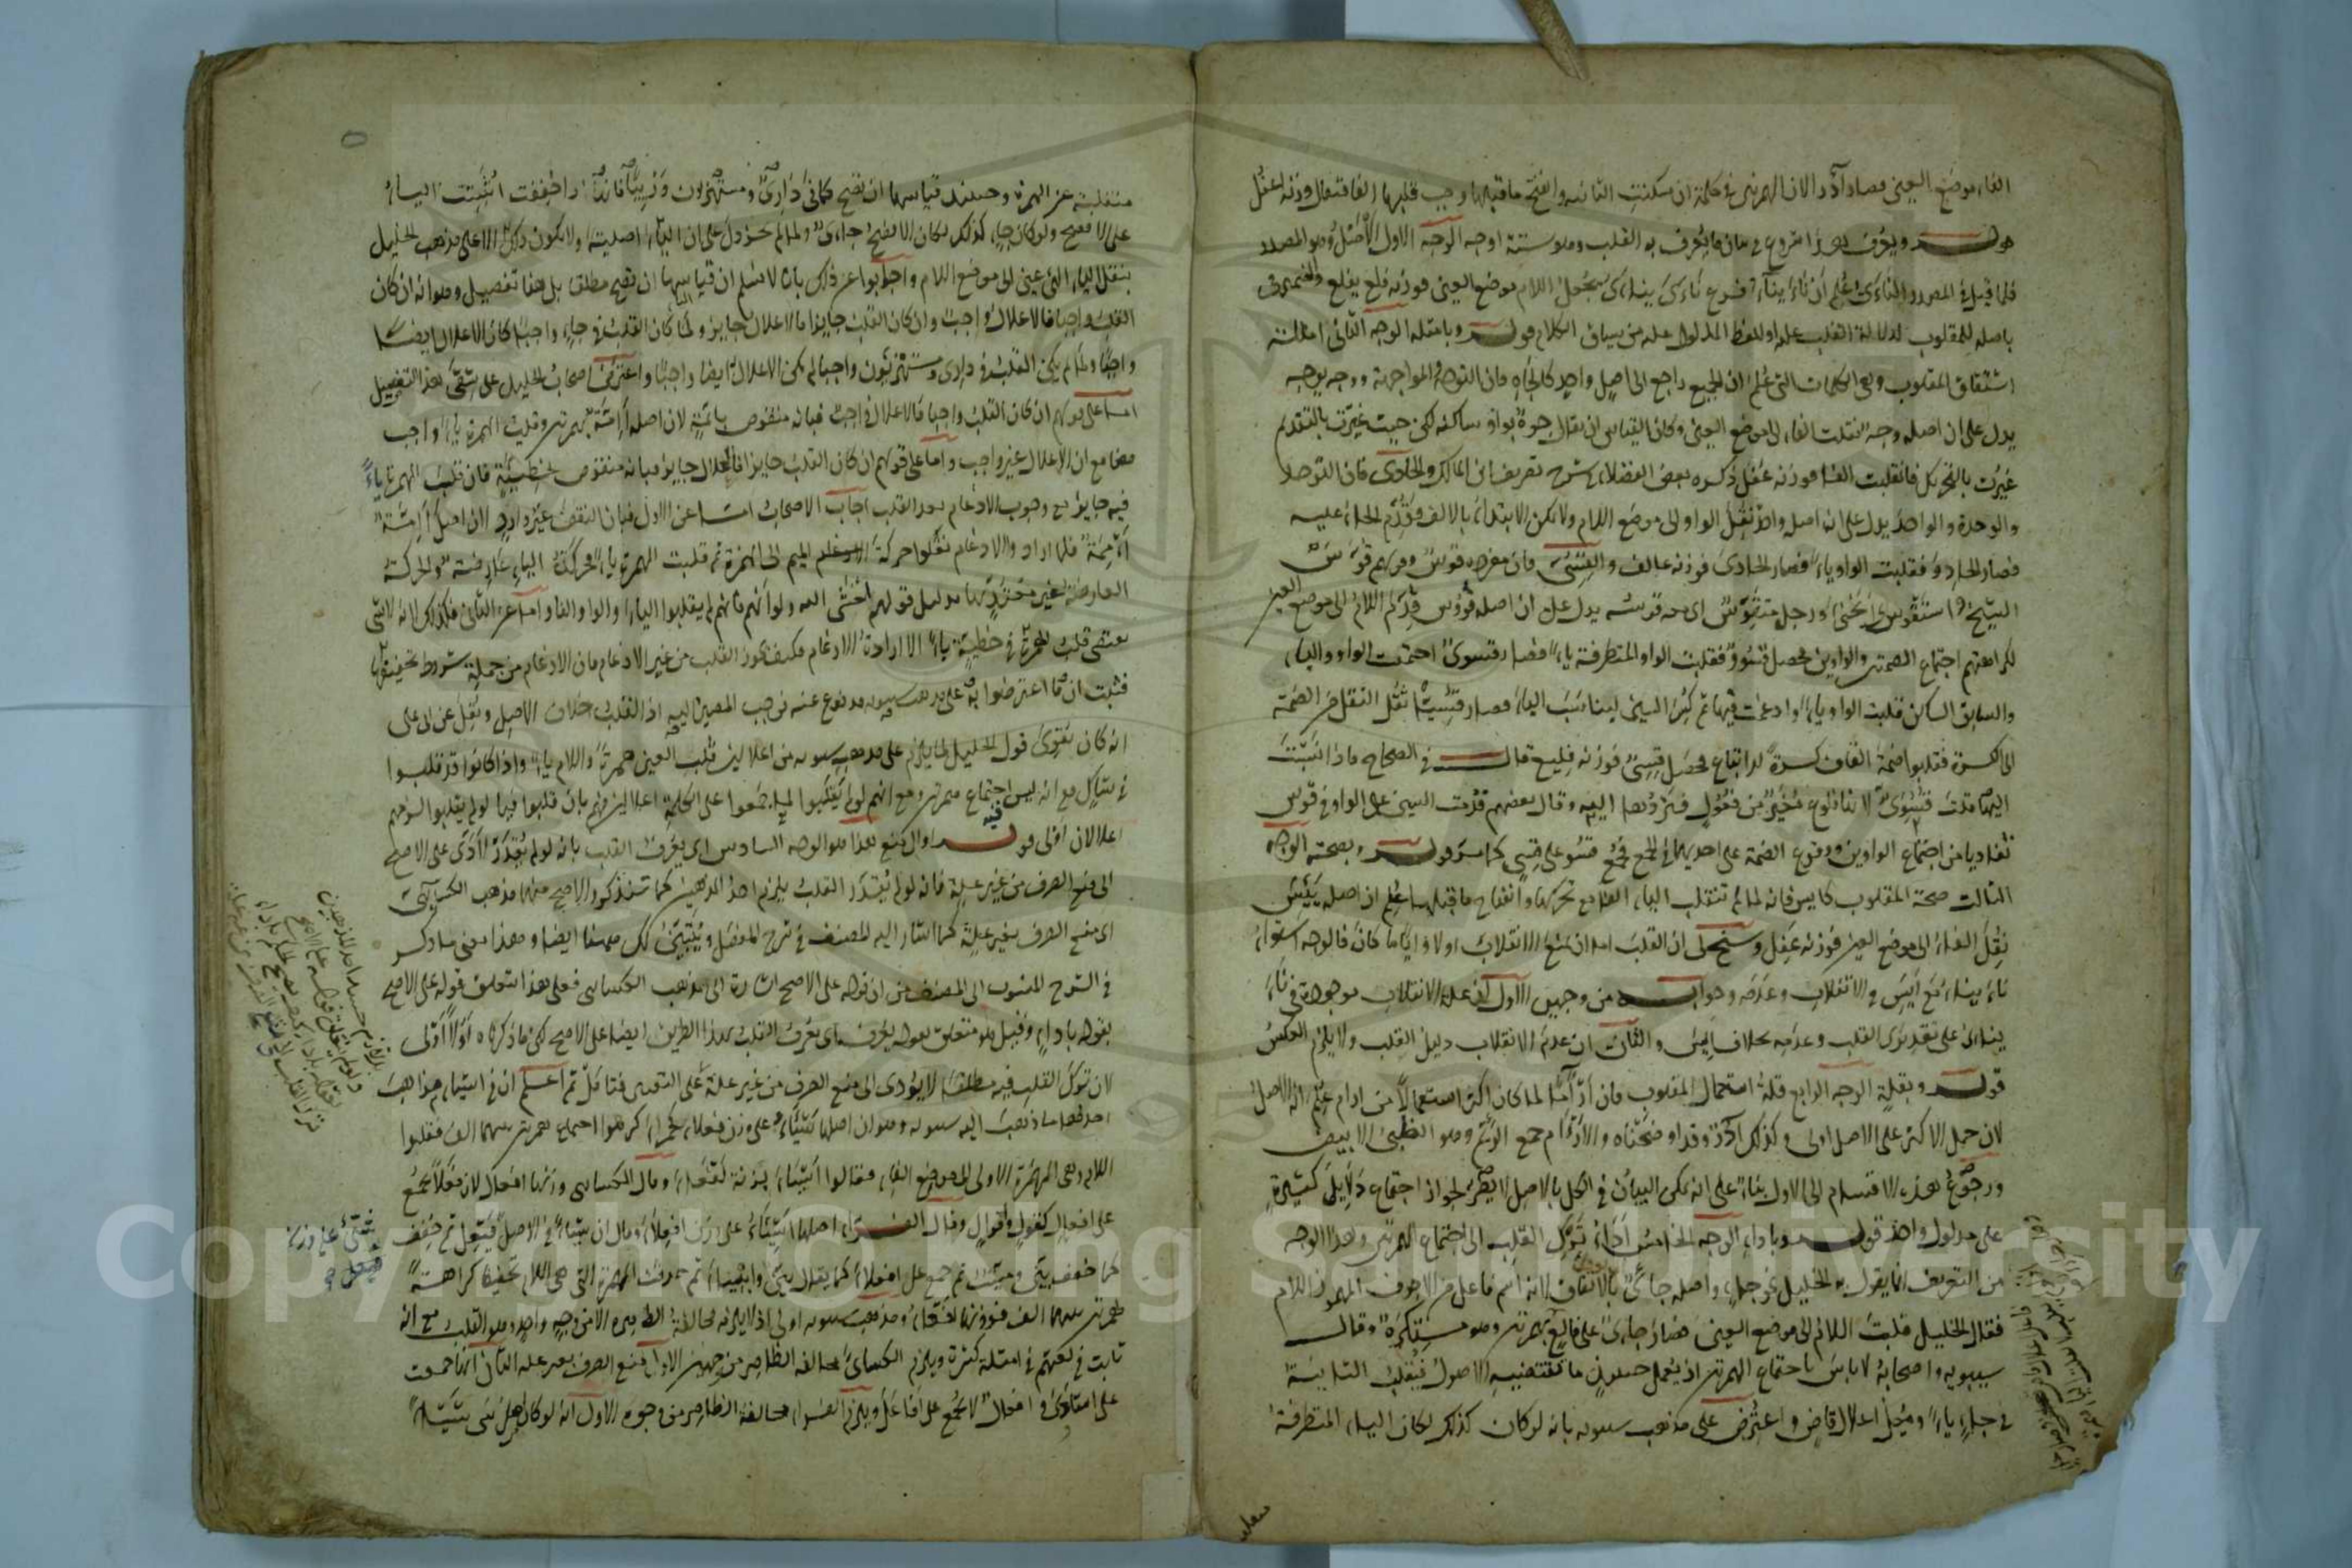 الفاء موضع العين فصار أأدر الا ان الهمزتين في كلمة ان سكنت الثانية وانفتح ما قبلها وجب قلبها الفا فتقول وزنه اعفل
قوله ويعرف هذا شروع في بيان ما يعرف به القلب وهو ستة اوجه الوجه الاول الاصل وهو المصدر
فلما قيل في المصدر النأي علم ان ناء يناء فرع نأى ينأى بجعل اللام موضع العين فوزنه فلع يفلع
باصله للمقلوب لدلالة القلب عليه او للفظ المدلول عليه من سياق الكلام قوله وبامثلة الوجه الثاني امثلة
اشتقاق المقلوب وهي الكلمات التي علم ان الجميع راجع الى اصل واحد كالجاه فان التوجه المواجهة ووجه يوجه
يدل على ان اصله وجه نقلت الفاء الى موضع العين وكان القياس ان يقال جوه بواو ساكنة لكن حيث غيرت بالتقديم
غيرت بالتحريك فانقلبت الفا فوزنه عفل ذكره بعض الفضلاء في شرح تصريف ابن مالك والحادي فان التوحد
والوحدة والواحد يدل على ان اصله واحد نقل الواو الى موضع اللام ولا يمكن الابتداء بالالف فقدم الحاء عليه
فصار الحادو فقلبت الواو ياء فصار الحادي فوزنه عالف والقسي فان مفرده قوس وقولهم قوس
الشيخ واستقوس اي انحنى ورجل متقوس اي معه قوسه يدل على ان اصله قووس قدم اللام الى موضع العين
لكراهتهم اجتماع الضمتين والواوين فحصل قسوو فقلبت الواو المتطرفة ياء فصار قسوي اجتمعت الواو والياء
والسابق الساكن قلبت الواو ياء وادغمت فيها ثم كسر السين ليناسب الياء فصار قسي ثقل النقل من الضمة
الى الكسرة فقلبوا ضمة القاف كسرة للاتباع فحصل قسي فوزنه فليع قال في الصحاح واذا نسبت
اليها قلت قسوي لانها فلوع مغير من فعول فتردها اليه وقال بعضهم قدمت السين على الواو في قووس
تفاديا من اجتماع الواوين ووقوع الضمة على احديهما في الجمع قوله وبصحته الوجه
الثالث صحة المقلوب كايس فانه لما لم تنقلب الياء الفا مع تحركها وانفتاح ما قبلها علم ان اصله يئس
نقل الفاء الى موضع العين فوزنه عفل
ناء يناء مع ايس في الانقلاب وعدمه وجوابه من وجهين الاول ان علة الانقلاب موجودة في ناء
يناء على تقديري القلب وعدمه بخلاف ايس والثاني ان عدم الانقلاب دليل القلب ولا يلزم العكس
قوله وبقلة الوجه الرابع قلة استعمال المقلوب فان آراما لما كان اكثر استعمالا من ارآم علم انه الاصل
لان حمل الاكثر على الاصل اولى وكذلك آدر وقد اوضحناه والآرام جمع الرئم وهو الظبي الابيض
ورجوع هذه الاقسام الى الاول بناء على انه يمكن البيان في الكل بالاصل لا يضر لجواز اجتماع دلايل كثيرة
على مدلول واحد قوله وباداء الوجه الخامس اداء ترك القلب الى اجتماع الهمزتين وهذا الوجه
من التعريف انما يقول به الخليل نحو جاء واصله جايئ بالاتفاق لانه اسم فاعل من الاجوف المهموز اللام
فقال الخليل قلبت اللام الى موضع العين فصار جاءي على فالع بهمزتين وهو مستكره وقال
سيبويه واصحابه لا باس باجتماع الهمزتين اذ يعمل حينئذ ما تقتضيه الاصول فيقلب الثانية
في جاء ياء ويعل اعلال قاض واعترض على مذهب سيبويه بانه لو كان كذلك لكان الياء المتطرفة
منقلبة عن الهمزة وحينئذ قياسها ان تصح كما في داري ومستهزيون
على الافصح ولو كان جاء كذلك لكان الافصح جاءي ولما لم يجز دل على ان الياء اصلية ولا يكون ذلك الا على مذهب الخليل
بنقل الياء التي هي عين الى موضع اللام واجابوا عن ذلك بانا لا نسلم ان قياسها ان تصح مطلقا بل هنا تفصيل وهو انه ان كان
القلب واجبا فالاعلال واجب وان كان القلب جايزا فالاعلال جايز ولما كان القلب في جاء واجبا كان الاعلال ايضا
واجبا ولما لم يكن القلب في داري ومستهزيون واجبا لم يكن الاعلال ايضا واجبا واعترض اصحاب الخليل على شقي هذا التفصيل
اما على قولهم ان كان القلب واجبا فالاعلال واجب فبانه منقوض بائمة لان اصله أأممة بهمزتين وقلبت الهمزة ياء واجب
هنا مع ان الاعلال غير واجب واما على قولهم ان كان القلب جايزا فالاعلال جايز فبانه منقوض بخطيئة فان قلب الهمزة ياء
فيه جايز مع وجوب الادغام بعد القلب اجاب الاصحاب اما عن الاول فبان النقض غير وارد لان اصل ائمة
أأممة فلما ارادوا الادغام نقلوا حركة الميم الى الهمزة ثم قلبت الهمزة ياء فحركة الياء عارضة والحركة
العارضة غير معتد بها بدليل قولهم اخشي الله ولو انهم فانهم لم يقلبوا الياء والواو الفا واما عن الثاني فكذلك لانه لا
يقتضي قلب الهمزة في خطيئة ياء الا ارادة الادغام فكيف يجوز القلب من غير الادغام فان الادغام من جملة شروط تخفيفها
فثبت ان ما اعترضوا به على مذهب سيبويه مدفوع عنه فوجب المصير اليه اذ القلب خلاف الاصل ونقل عن ابي علي
انه كان يقوي قول الخليل لما يلزم على مذهب سيبويه من اعلالين قلب العين همزة واللام ياء واذا كانوا قد قلبوا
في شاك مع انه ليس فيه اجتماع همزتين ومع انهم لو لم يقلبوا لم يجمعوا على الكلمة اعلالين فهم بان قلبوا فيما لو لم يقلبوا لزمهم
اعلالان اولى قوله او الى منع هذا هو الوجه السادس اي يعرف القلب بانه لو لم يقدر ادى على الاصح
الى منع الصرف من غير علة فانه لو لم يقدر القلب يلزم احد المذهبين كما سنذكر والاصح منهما مذهب الكسائي
اي منع الصرف بغير علة كما اشار اليه المصنف في شرح المفصل ويتبين لك ههنا ايضا وهذا معنى ما ذكر
في الشرح المنسوب الى المصنف من ان قوله على الاصح اشارة الى مذهب الكسائي فعلى هذا يتعلق قوله على الاصح
بقوله باداء وقيل هو متعلق بقوله يعرف اي يعرف القلب بهذا الطريق ايضا على الاصح لكن ما ذكرناه اولا اولى
لان ترك القلب فيه مطلقا لا يؤدي الى منع الصرف من غير علة على التعيين فتامل ثم اعلم ان في اشياء مذاهب
احدها ما ذهب اليه سيبويه وهو ان اصلها شيئاء على وزن فعلاء كحمراء كرهوا اجتماع همزتين بينهما الف فقلبوا
اللام وهي الهمزة الاولى الى موضع الفاء فقالوا اشياء بزنة لفعاء وقال الكسائي وزنها افعال لان فعلا يجمع
على افعال كقول واقوال وقال الفراء اصلها اشيئاء على وزن افعلاء وقال ان شيئا في الاصل شيئ ثم خفف
كما خفف بين وميت ثم جمع على افعلاء كما يقال بين وابيناء ثم حذفت الهمزة التي هي اللام تخفيفا كراهة
همزتين بينهما الف فوزنها افعاء ومذهب سيبويه اولى اذ لا يلزمه مخالفة الظاهر الا من وجه واحد وهو القلب مع انه
ثابت في لغتهم في امثلة كثيرة ويلزم الكسائي مخالفة الظاهر من وجهين الاول منع الصرف بغير علة الثاني انها جمعت
على اشاوى وافعال لا يجمع على افاعل ويلزم الفراء مخالفة الظاهر من وجوه الاول انه لو كان اصل شيء شيئا